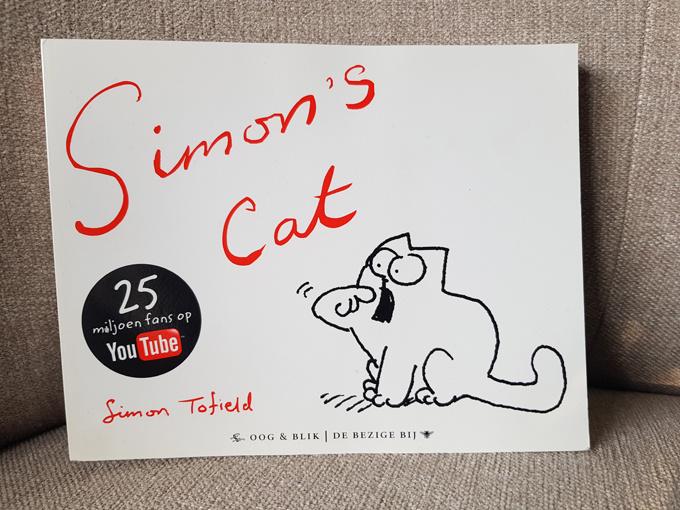 Simon's
Cat
25
miljoen fans op
YouTube
Simon Tofield
OOG & BLIK | DE BEZIGE BIJ